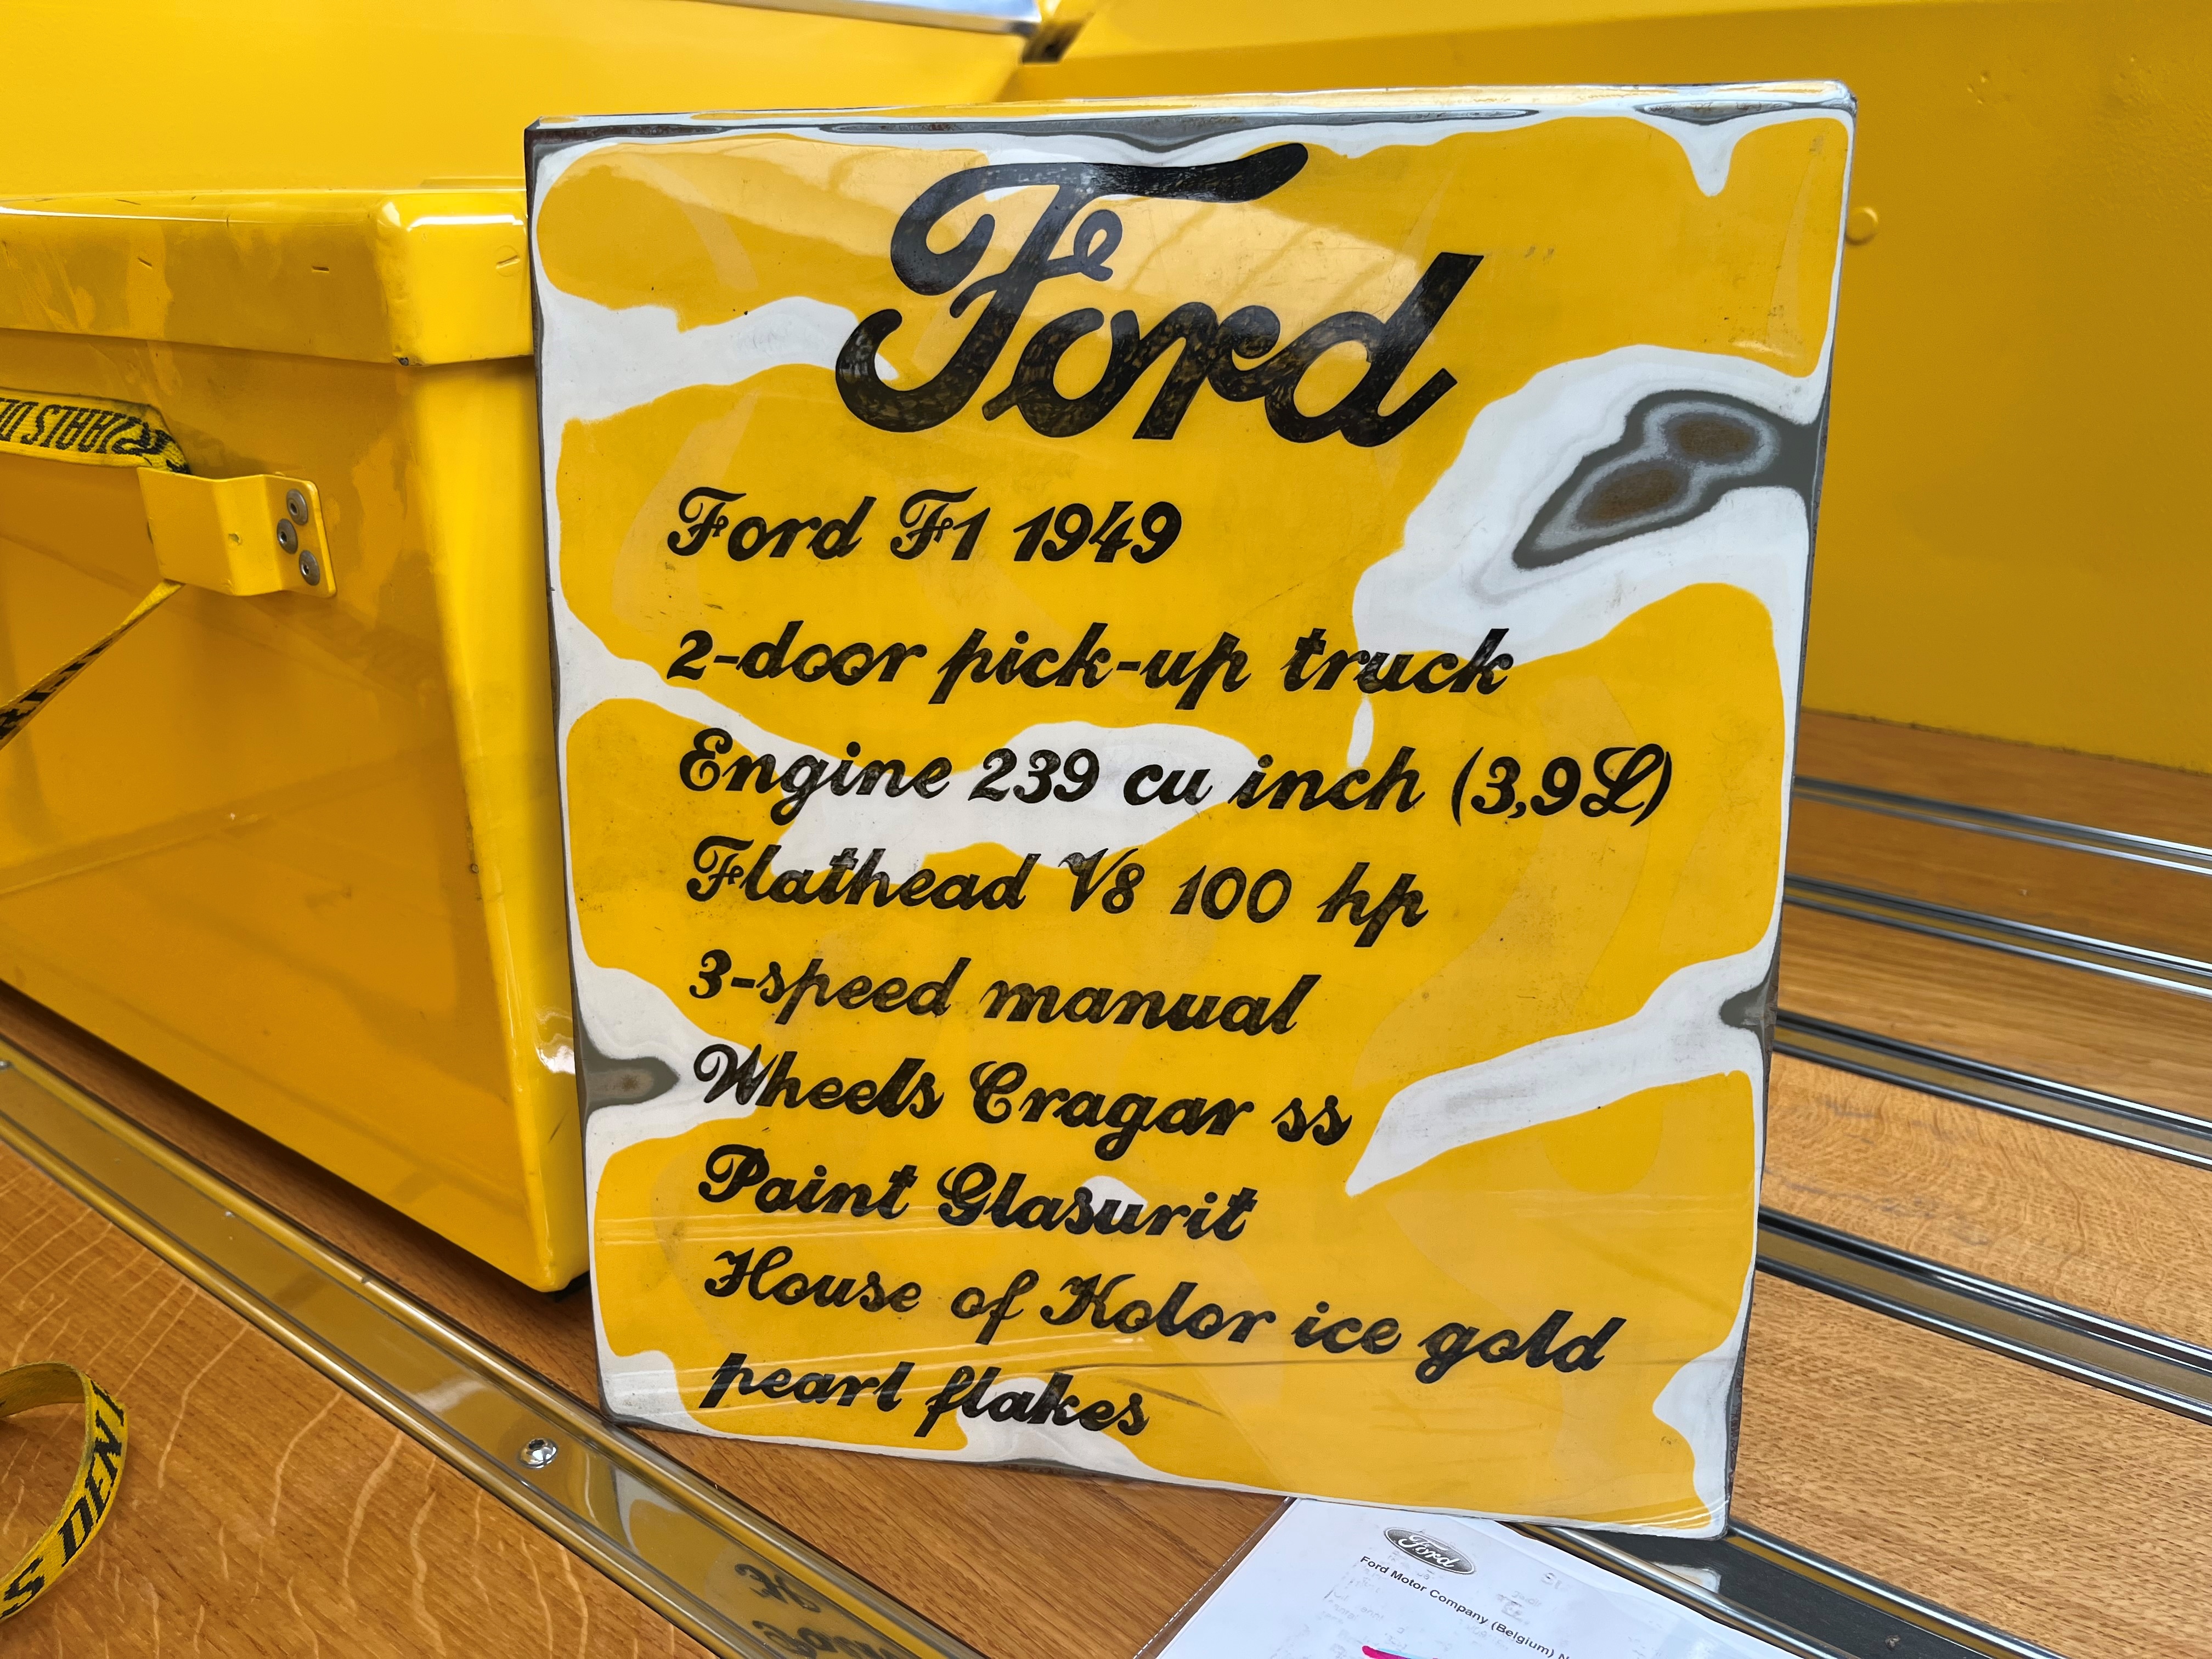 Ford
Ford F1 1949
2-door pick-up truck
Engine 239 cu inch (3,9L)
Flathead V8 100 hp
3-speed manual
Wheels Cragar ss
Paint Glasurit
House of Kolor ice gold
pearl flakes
Ford
Ford Motor Company (Belgium)